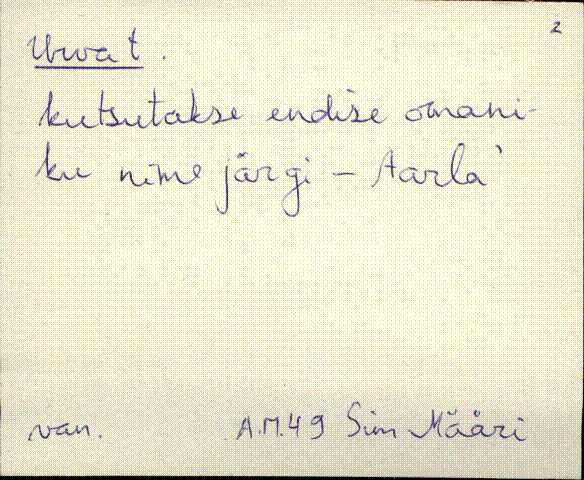 2
Urvat.
kutsutakse endise omani-
ku nime järgi – Aarla'
van. A.M.49 Siim Määri